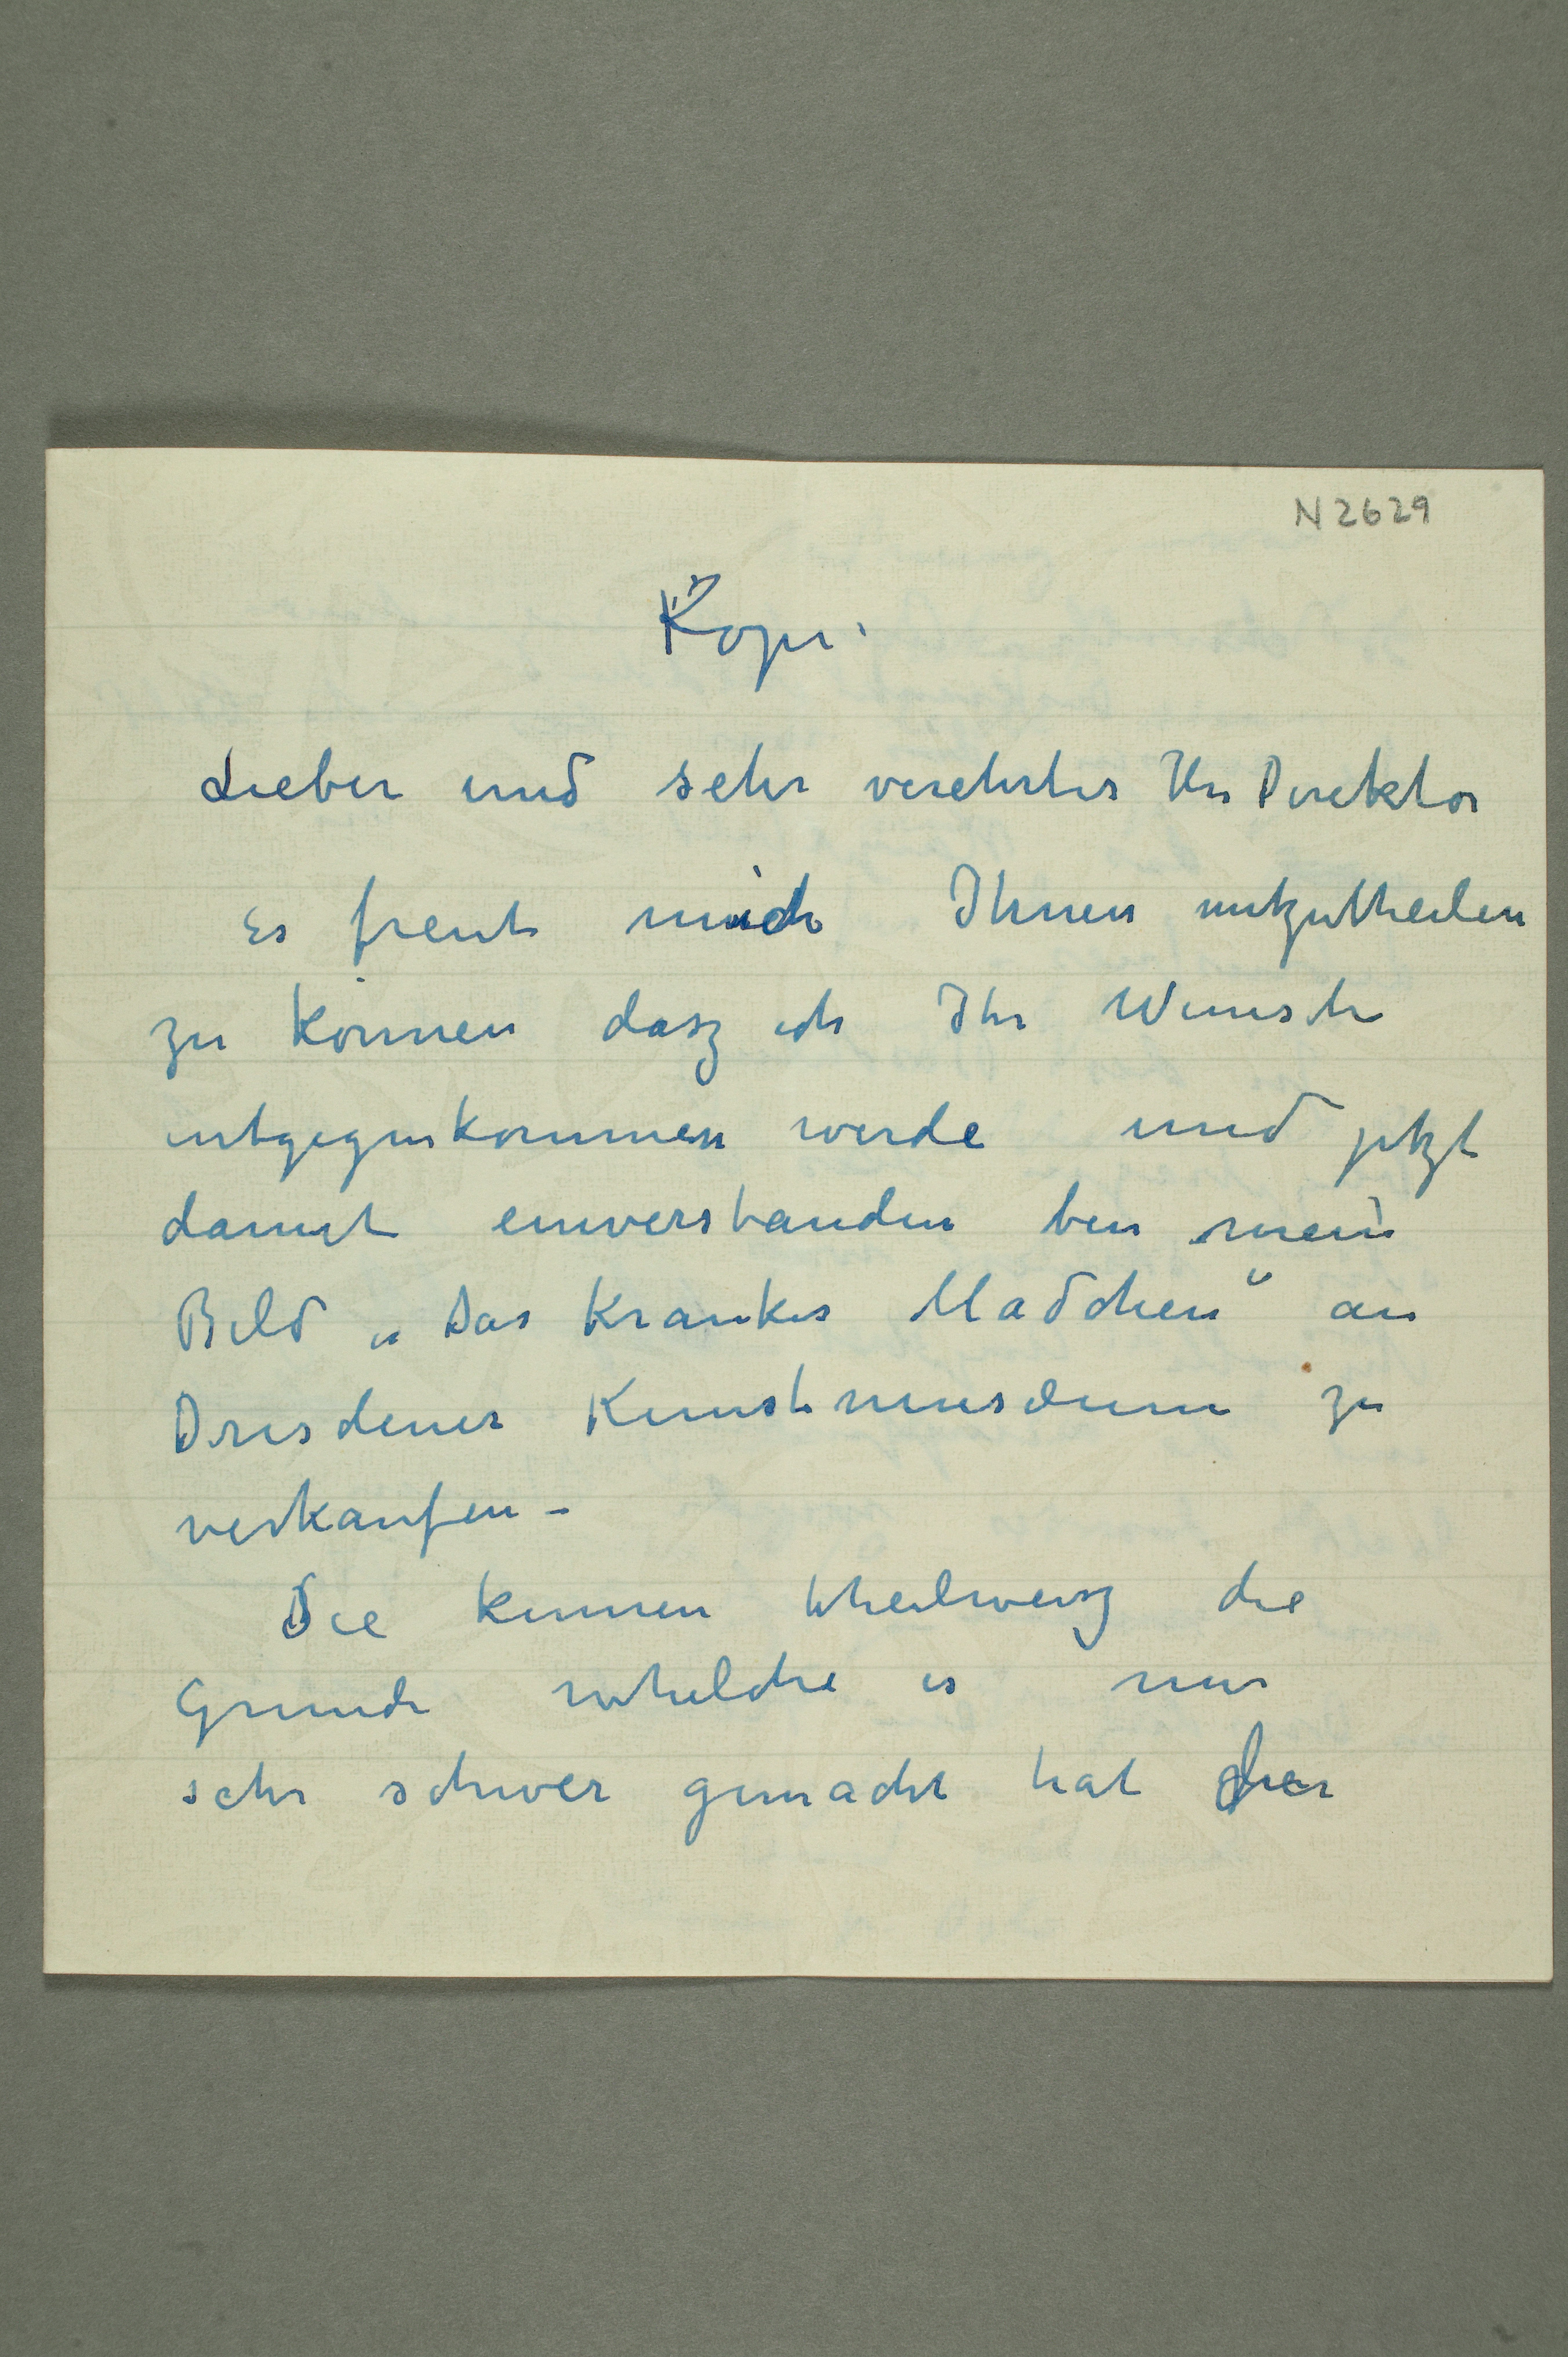 N 2629
Kopi.
Lieber und sehr verehrter Hr Direktor
Es freut mich Ihnen mitzutheilen
zu können dasz ich Ihr Wunsch
entgegenkommen werde und jetzt
damit einverstanden bin mein
Bild „Das Kranke Madchen“ an
Dresdener Kunstmuseum zu
verkaufen –
Sie kennen theilweisz die
Grunde whelche es mir
sehr schwer gemacht hat